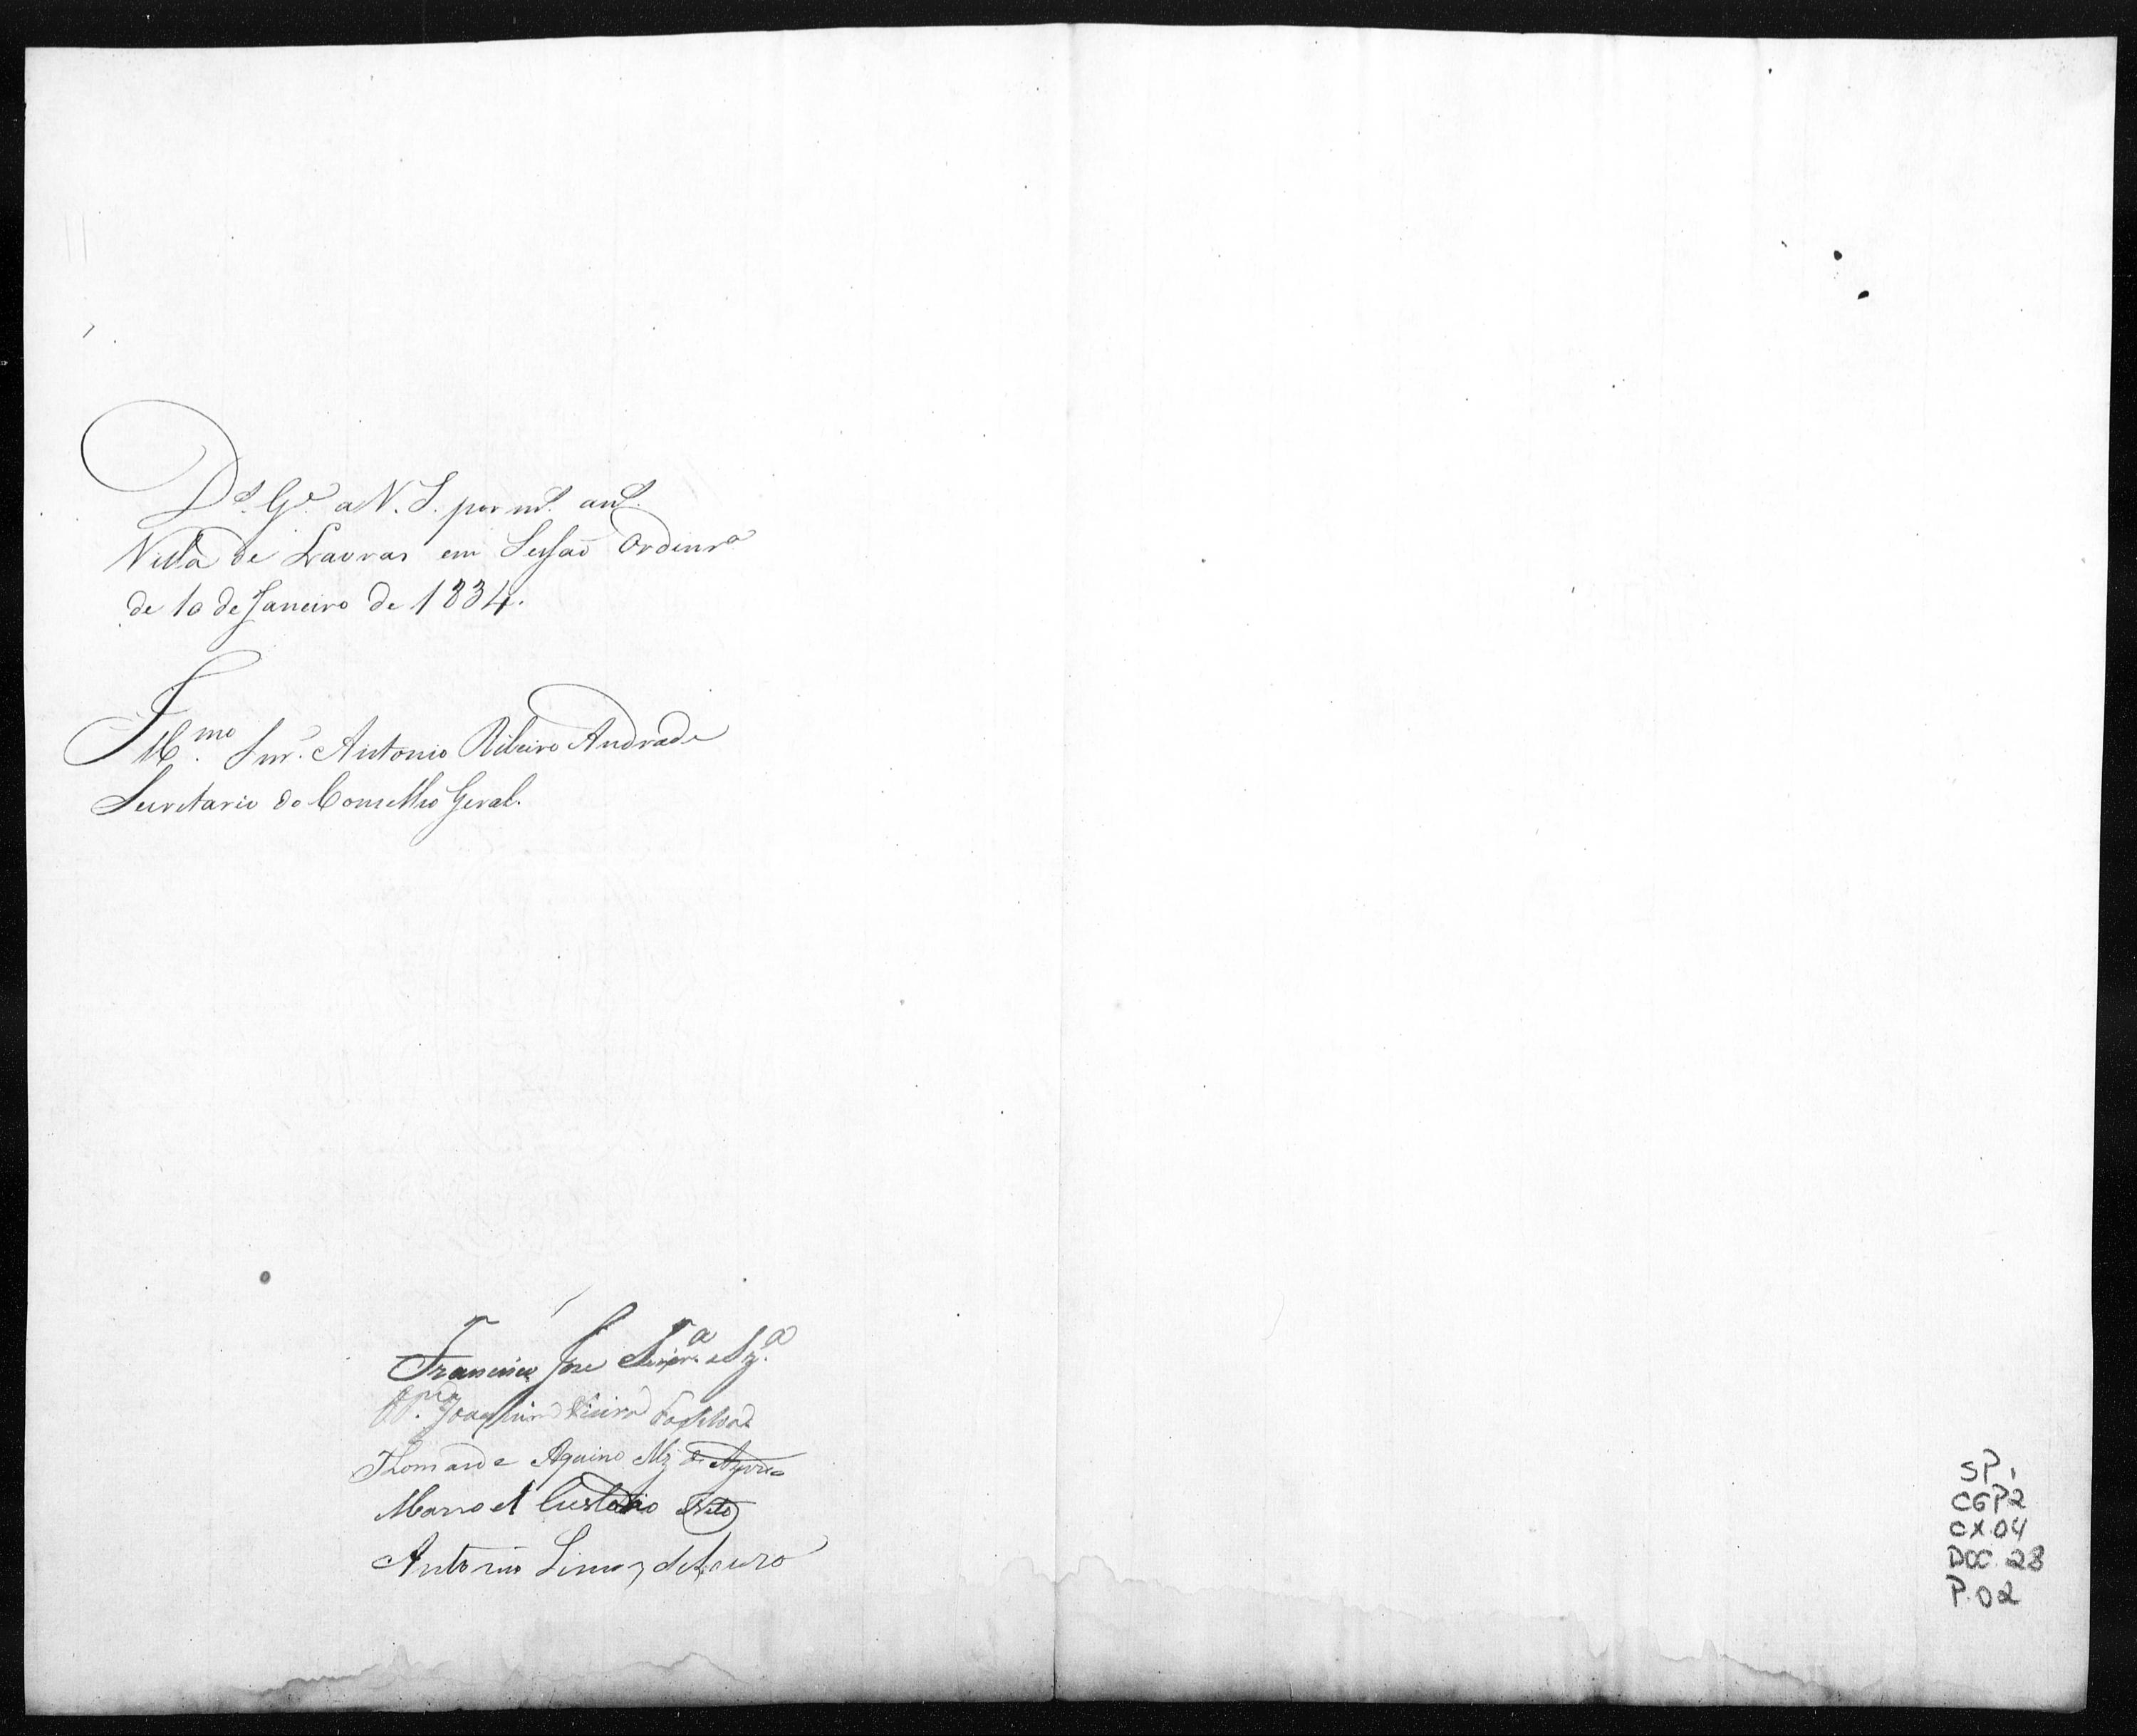 D.s G.e a V. S. por m.s an.s
Villa de Lavras em Sessaõ Ordinr.a
de 10 de Janeiro de 1834.
Ill.mo Snr. Antonio Ribeiro Andrade
Secretario do Conselho Geral.
Francisco Jose
Joaquim
Thomas de Aquino Alz de
Manoel Custodio Neto
Antonio Simoz de Souza
SP.
CGP2
CX.04
DOC. 28
P.02